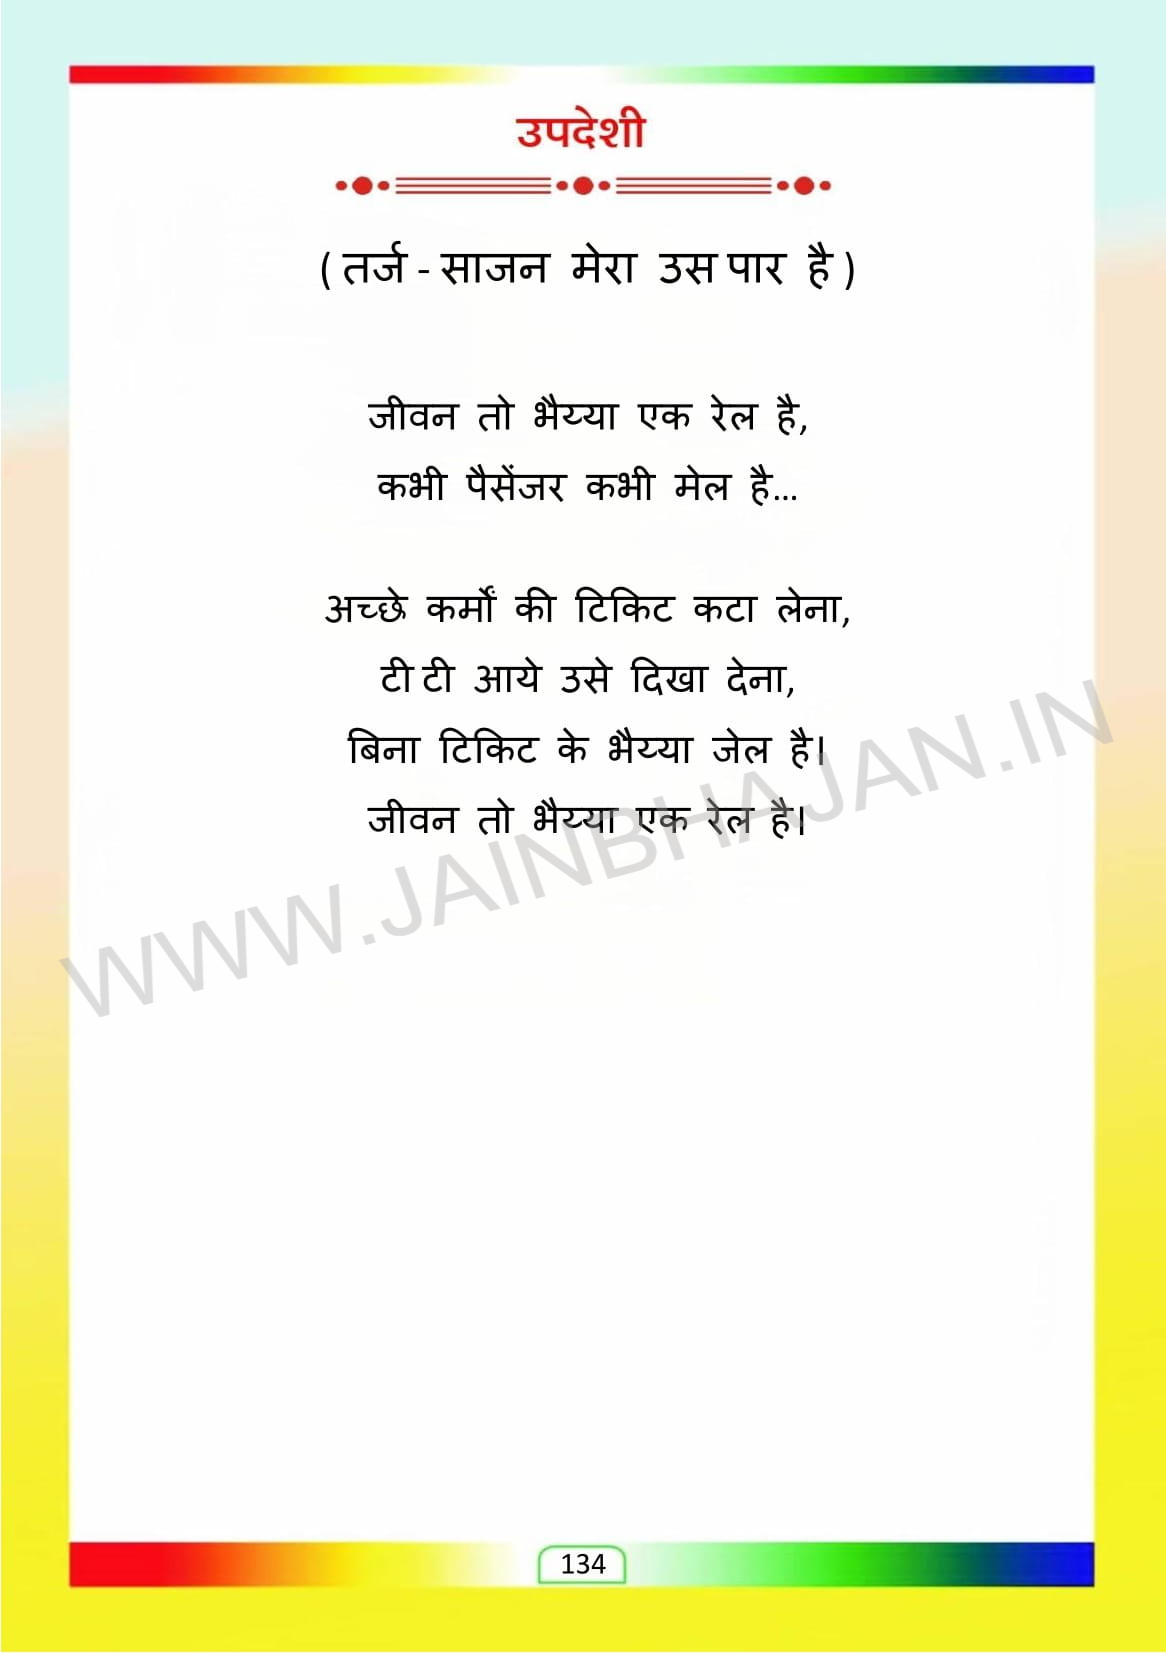 उपदेशी
( तर्ज - साजन मेरा उस पार है )
जीवन तो भैय्या एक रेल है,
कभी पैसेंजर कभी मेल है...
अच्छे कर्मों की टिकिट कटा लेना,
टी टी आये उसे दिखा देना,
बिना टिकिट के भैय्या जेल है।
जीवन तो भैय्या एक रेल है।
WWW.JAINBHAJAN.IN
134